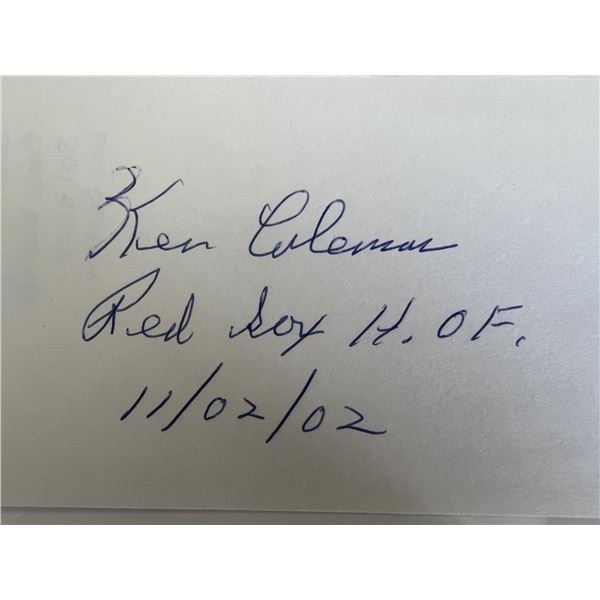 Ken Coleman
Red Sox H. OF.
11/02/02